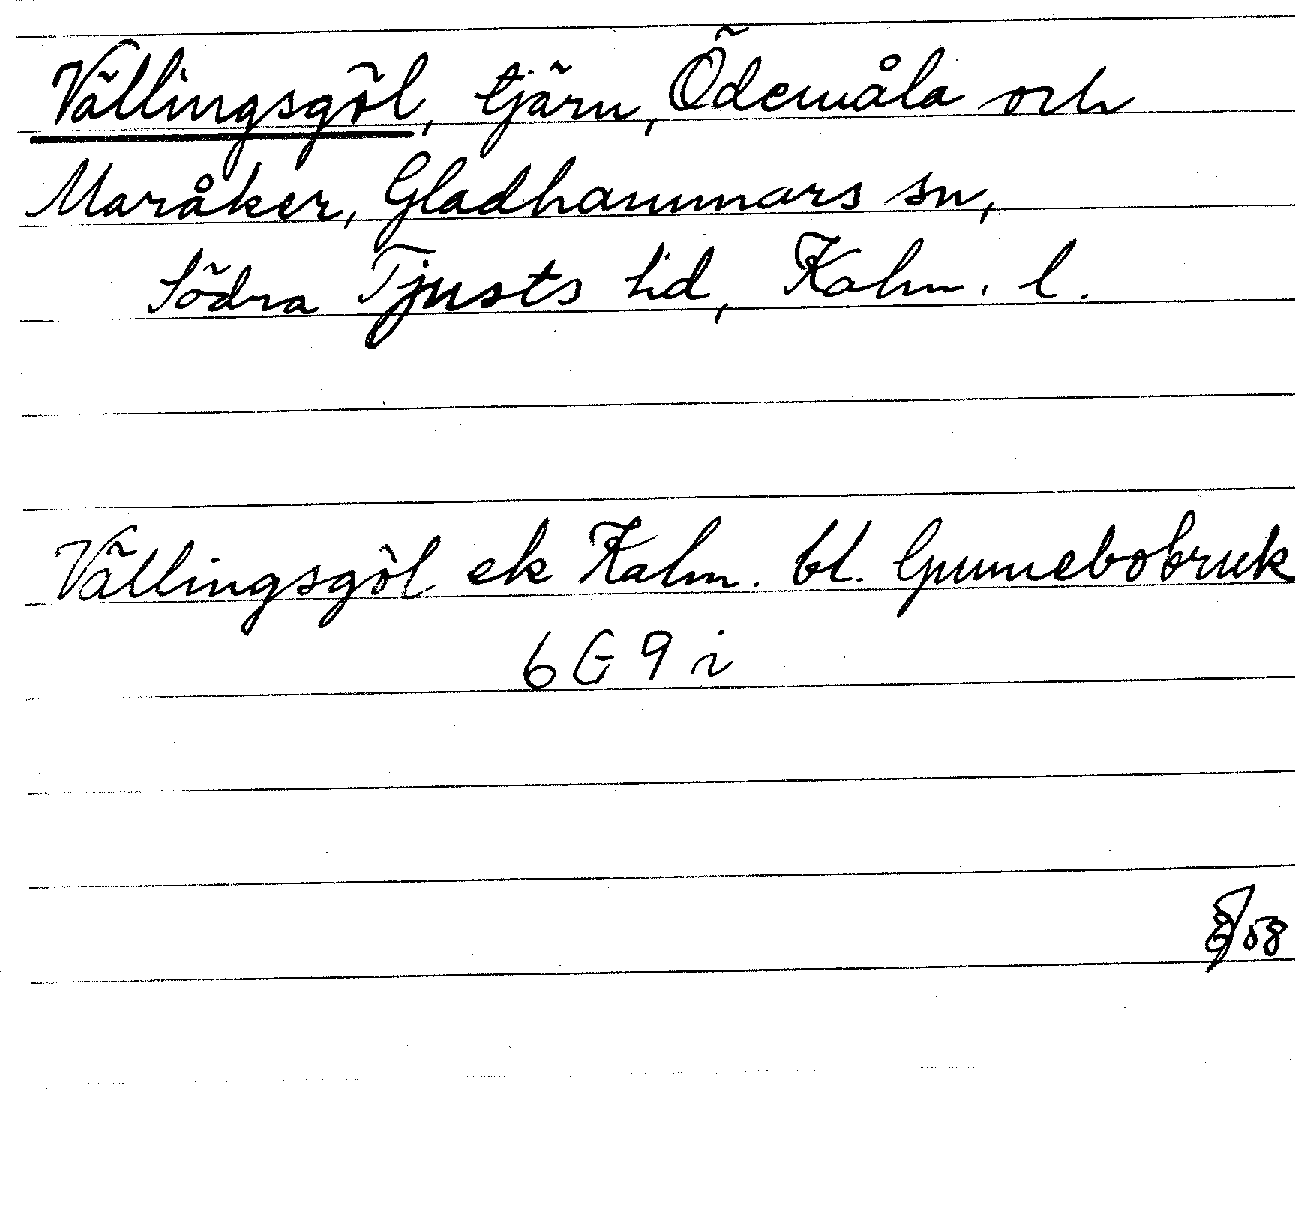 Vällingsgöl, tjärn, Ödemåla och
Maråker, Gladhammars sn,
Södra Tjusts hd, Kalm. l.
Vällingsgöl ek Kalm. bl. Gunnebobruk
6G9i
/58